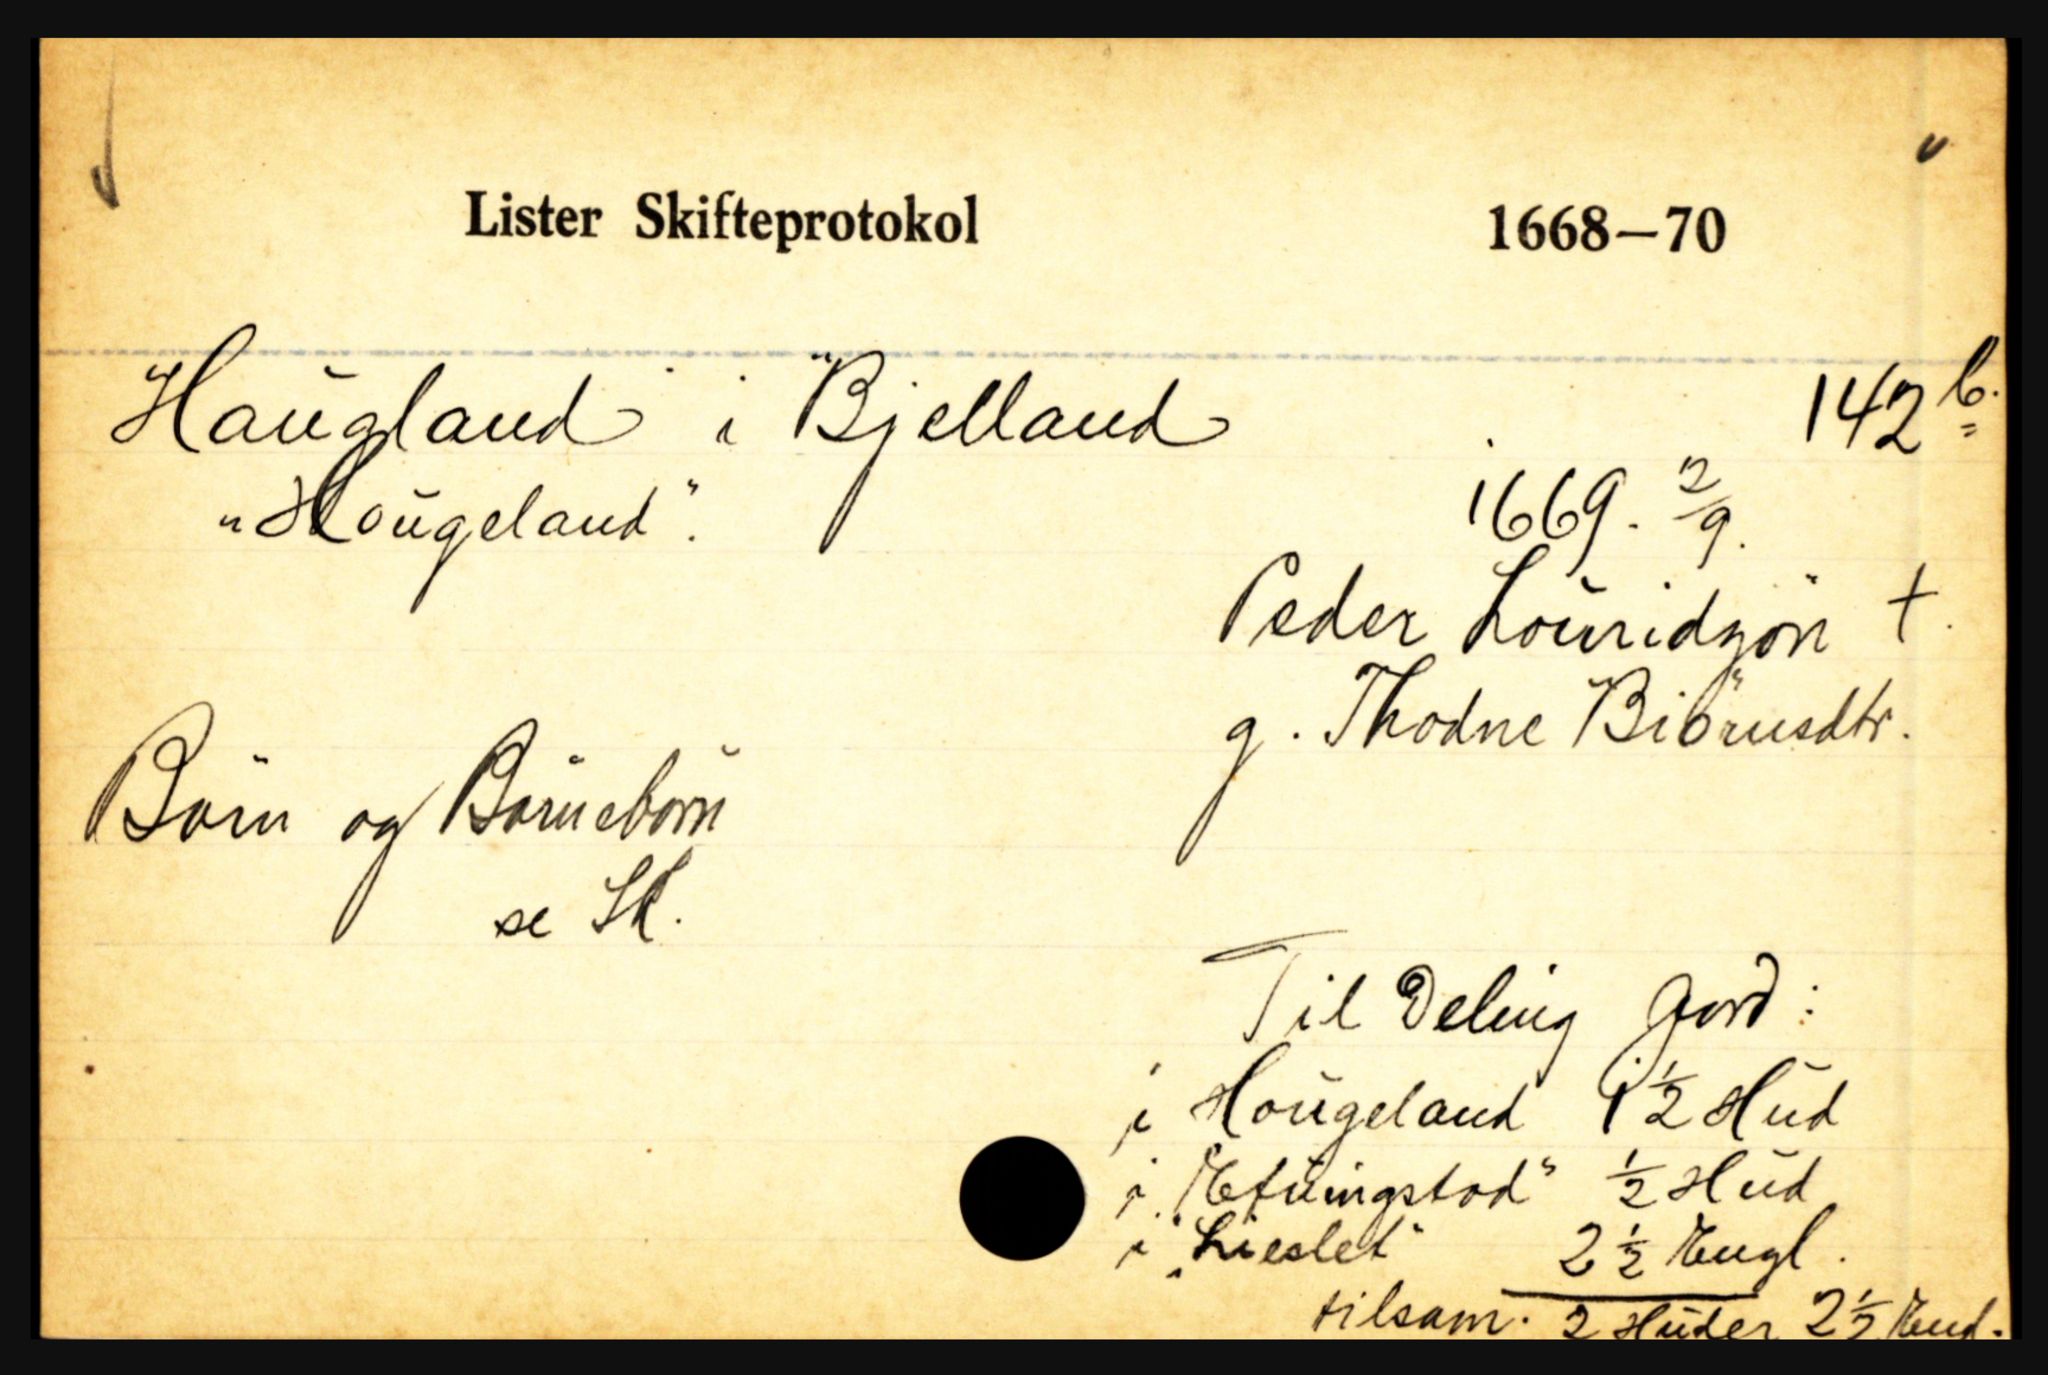 Lister Skifteprotokol 1668—70
Haugland i Bjelland 142 b.
„Hougeland". 1669. 2/9.
Peder Louridzön †.
g. Thodne Biörnsdtr.
Börn og Börnebörn
se Sk.
Til Deling Jord:
i Hougeland 1 1/2 Hud
i „Refningstod" 1/2 Hud
i „Lieslet" 2 1/2 Engl.
tilsam. 2 Huder 2 1/2 Engl.